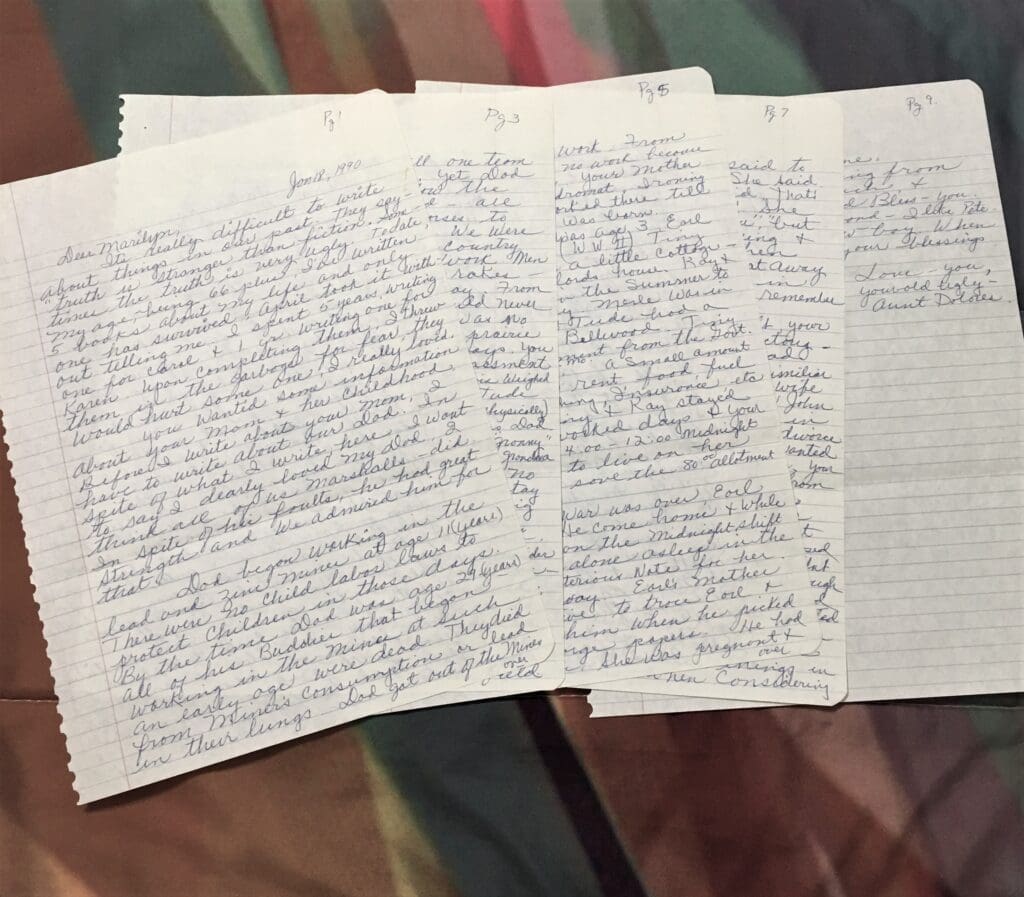 Pg 1
Jan 18, 1990
Dear Marilyn,
Its really difficult to write
about things in our past. They say
"Truth is stranger than fiction. Some
times the truth is very ugly. To date,
my age-being 66 plus I've written
5 books about my life and only
one has survived. April took it with-
out telling me. I spent 5 years, writing
one for Carol & 1 yr. writing one for
Karen. Upon completing them, I threw
them in the garbage for fear, they
would hurt some one, I really loved.
You wanted some information
about your Mom & her childhood.
Before I write about your mom, I
have to write about our Dad. In
spite of what I write, here, I want
to say I dearly loved my Dad, I
think all of us Marshalls - did
In spite of his faults, he had great
strength and we admired him for
that
Dad began working in the
lead and zinc mines at age 11 (years)
There were no child labor laws to
protect children in those days.
By the time Dad was age 29 (years)
all of his Buddies that began
working in the mines at such
an early age were dead. They died
from Miner's consumption or lead
in their lungs. Dad got out of the Mines
over
Pg 3
one team
yet Dad
the
all
to
We were
Country
work Men
rakes -
ay. From
Did never
was no
prairie
days. You
assment
Weighed
Tude
physically)
Dad
"nonny"
grandma
No
tay
Pg 5
work - From
no work because
Your Mother
dromat, Ironing
orked there till
was born.
was age 3, Earl
(W.W. II) Tiny
a little Cottage
lords house. Kay &
the Summer to
Merle was in
Tude had a
Bellwood. Tiny
ment from the Govt.
a small amount
rent, food fuel
Insurance, etc
& Kay stayed
worked days & your
4:00 - 12:00 Midnight
to live on her
save the 80.00 allotment
War was over, Earl
He come home & while
on the Midnight shift
alone asleep in the
terious Note for her.
way. Earl's Mother
to trace Earl &
him when he picked
papers. He had
She was pregnant &
over
Pg 7
said to
She said
That's
She
but
&
at away
in
remember
your
wife
John
in
divorce
wanted
you
rom
things in
when Considering
Pg 9.
ne.
ng from
&
Bless - you.
ond - I like Pete.
boy. When
your blessings
Love - you,
your old Ugly -
Aunt Dolores.